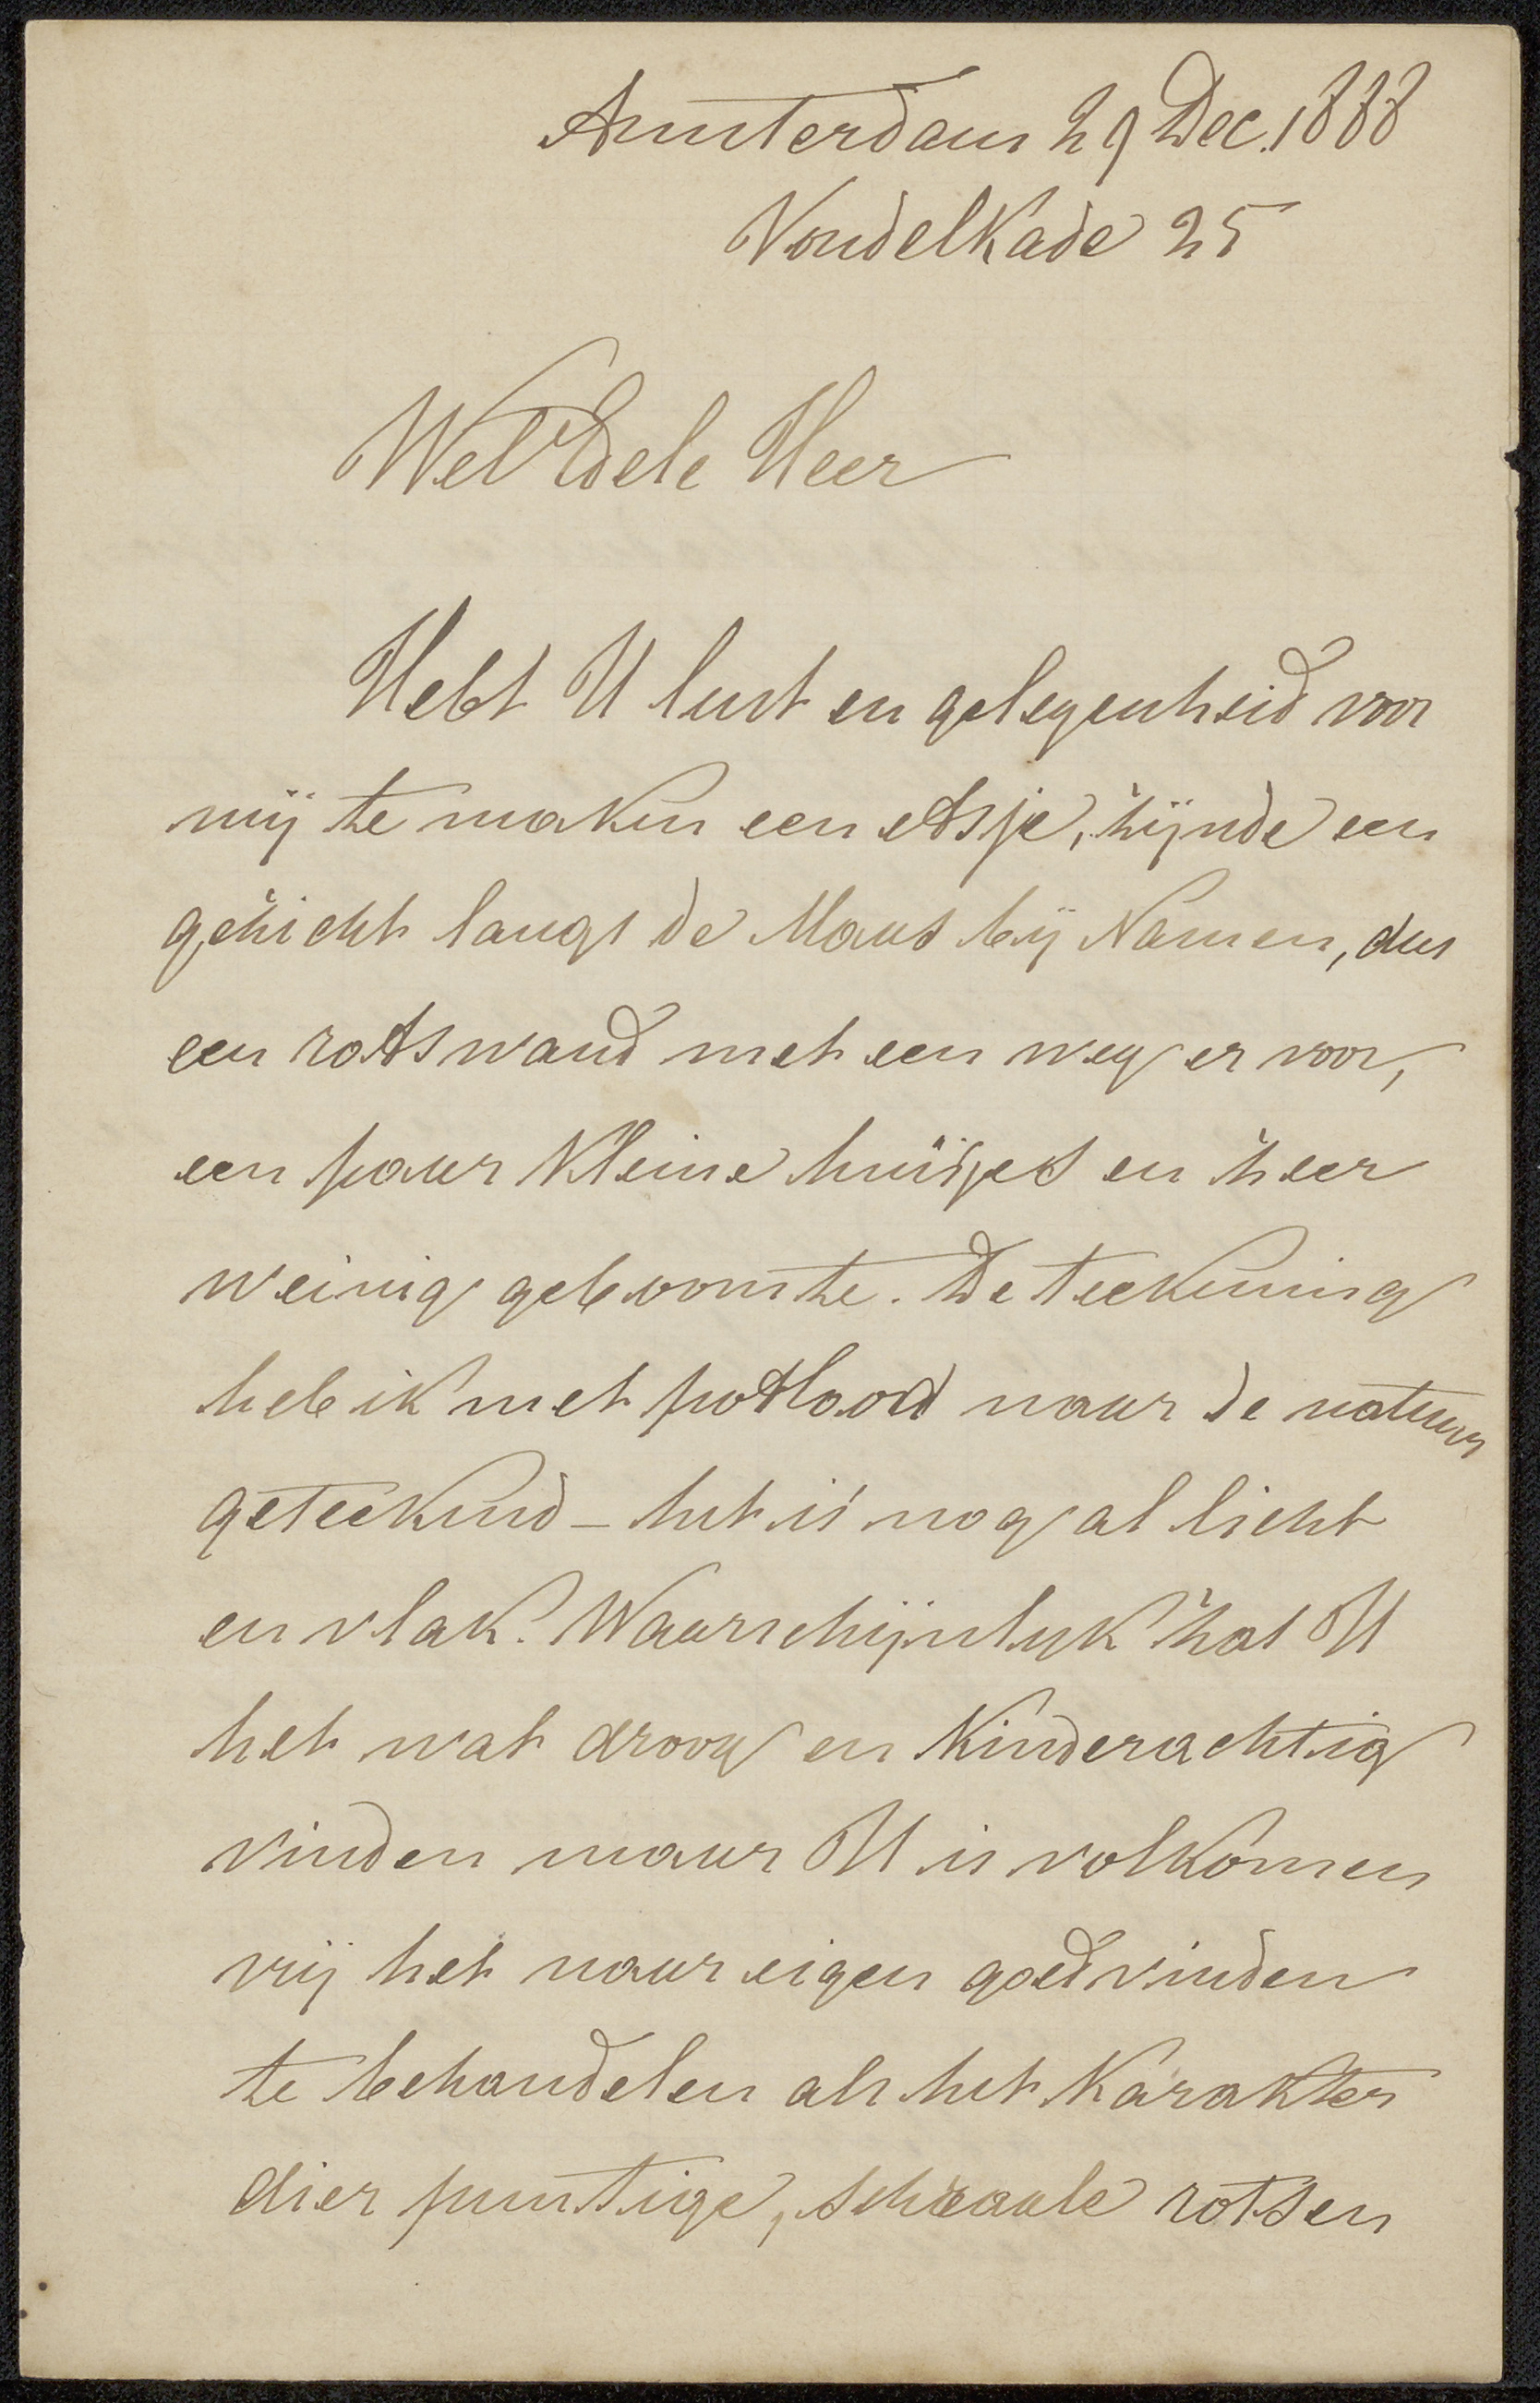 Amsterdam 29 Dec. 1888
Vondelkade 25
Wel Edele Heer
Hebt U lust en gelegenheid voor
mij te maken een etsje, zijnde een
gezicht langs de Maas bij Namen, dus
een rotswand met een weg er voor,
een paar kleine huisjes en zeer
weinig geboomte. De teekening
heb ik met potlood naar de natuur
geteekend – het is nog al licht
en vlak. Waarschijnlijk zal U
het wat droog en kinderachtig
vinden maar U is volkomen
vrij het naar eigen goedvinden
te behandelen als het karakter
dier puntige, schraale rotsen